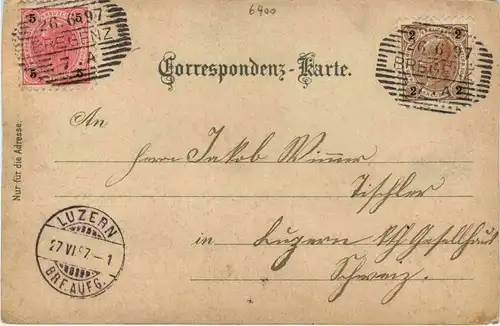 6900
5 5
26.6.97
BREGENZ
7 A
5 5
26.6.97
BREGENZ
2 2
7 A
Correspondenz-Karte.
Nur für die Adresse.
An
Herrn Jakob Wimmer
Tischler
in Luzern Gesellhaus
Schweiz.
LUZERN
27 VI 97-1
BRF. AUFG.